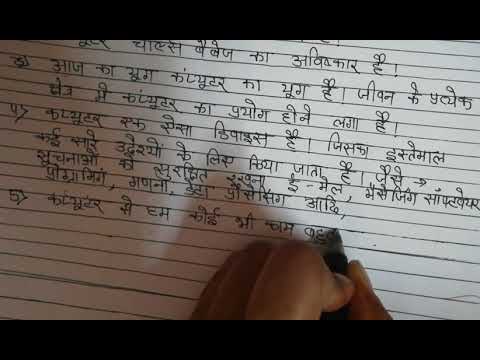 चार्ल्स बैबेज का आविष्कार है।
3) आज का युग कंप्यूटर का युग है। जीवन के प्रत्येक
क्षेत्र में कंप्यूटर का प्रयोग होने लगा है।
4) कंप्यूटर एक ऐसा डिवाइस है। जिसका इस्तेमाल
कई सारे उद्देश्यों के लिए किया जाता है। जैसे →
सूचनाओं को सुरक्षित रखना, ई-मेल, मैसेजिंग सॉफ्टवेयर
प्रोग्रामिंग, गणना, डेटा प्रोसेसिंग आदि,
5) कंप्यूटर से हम कोई भी काम बहुत